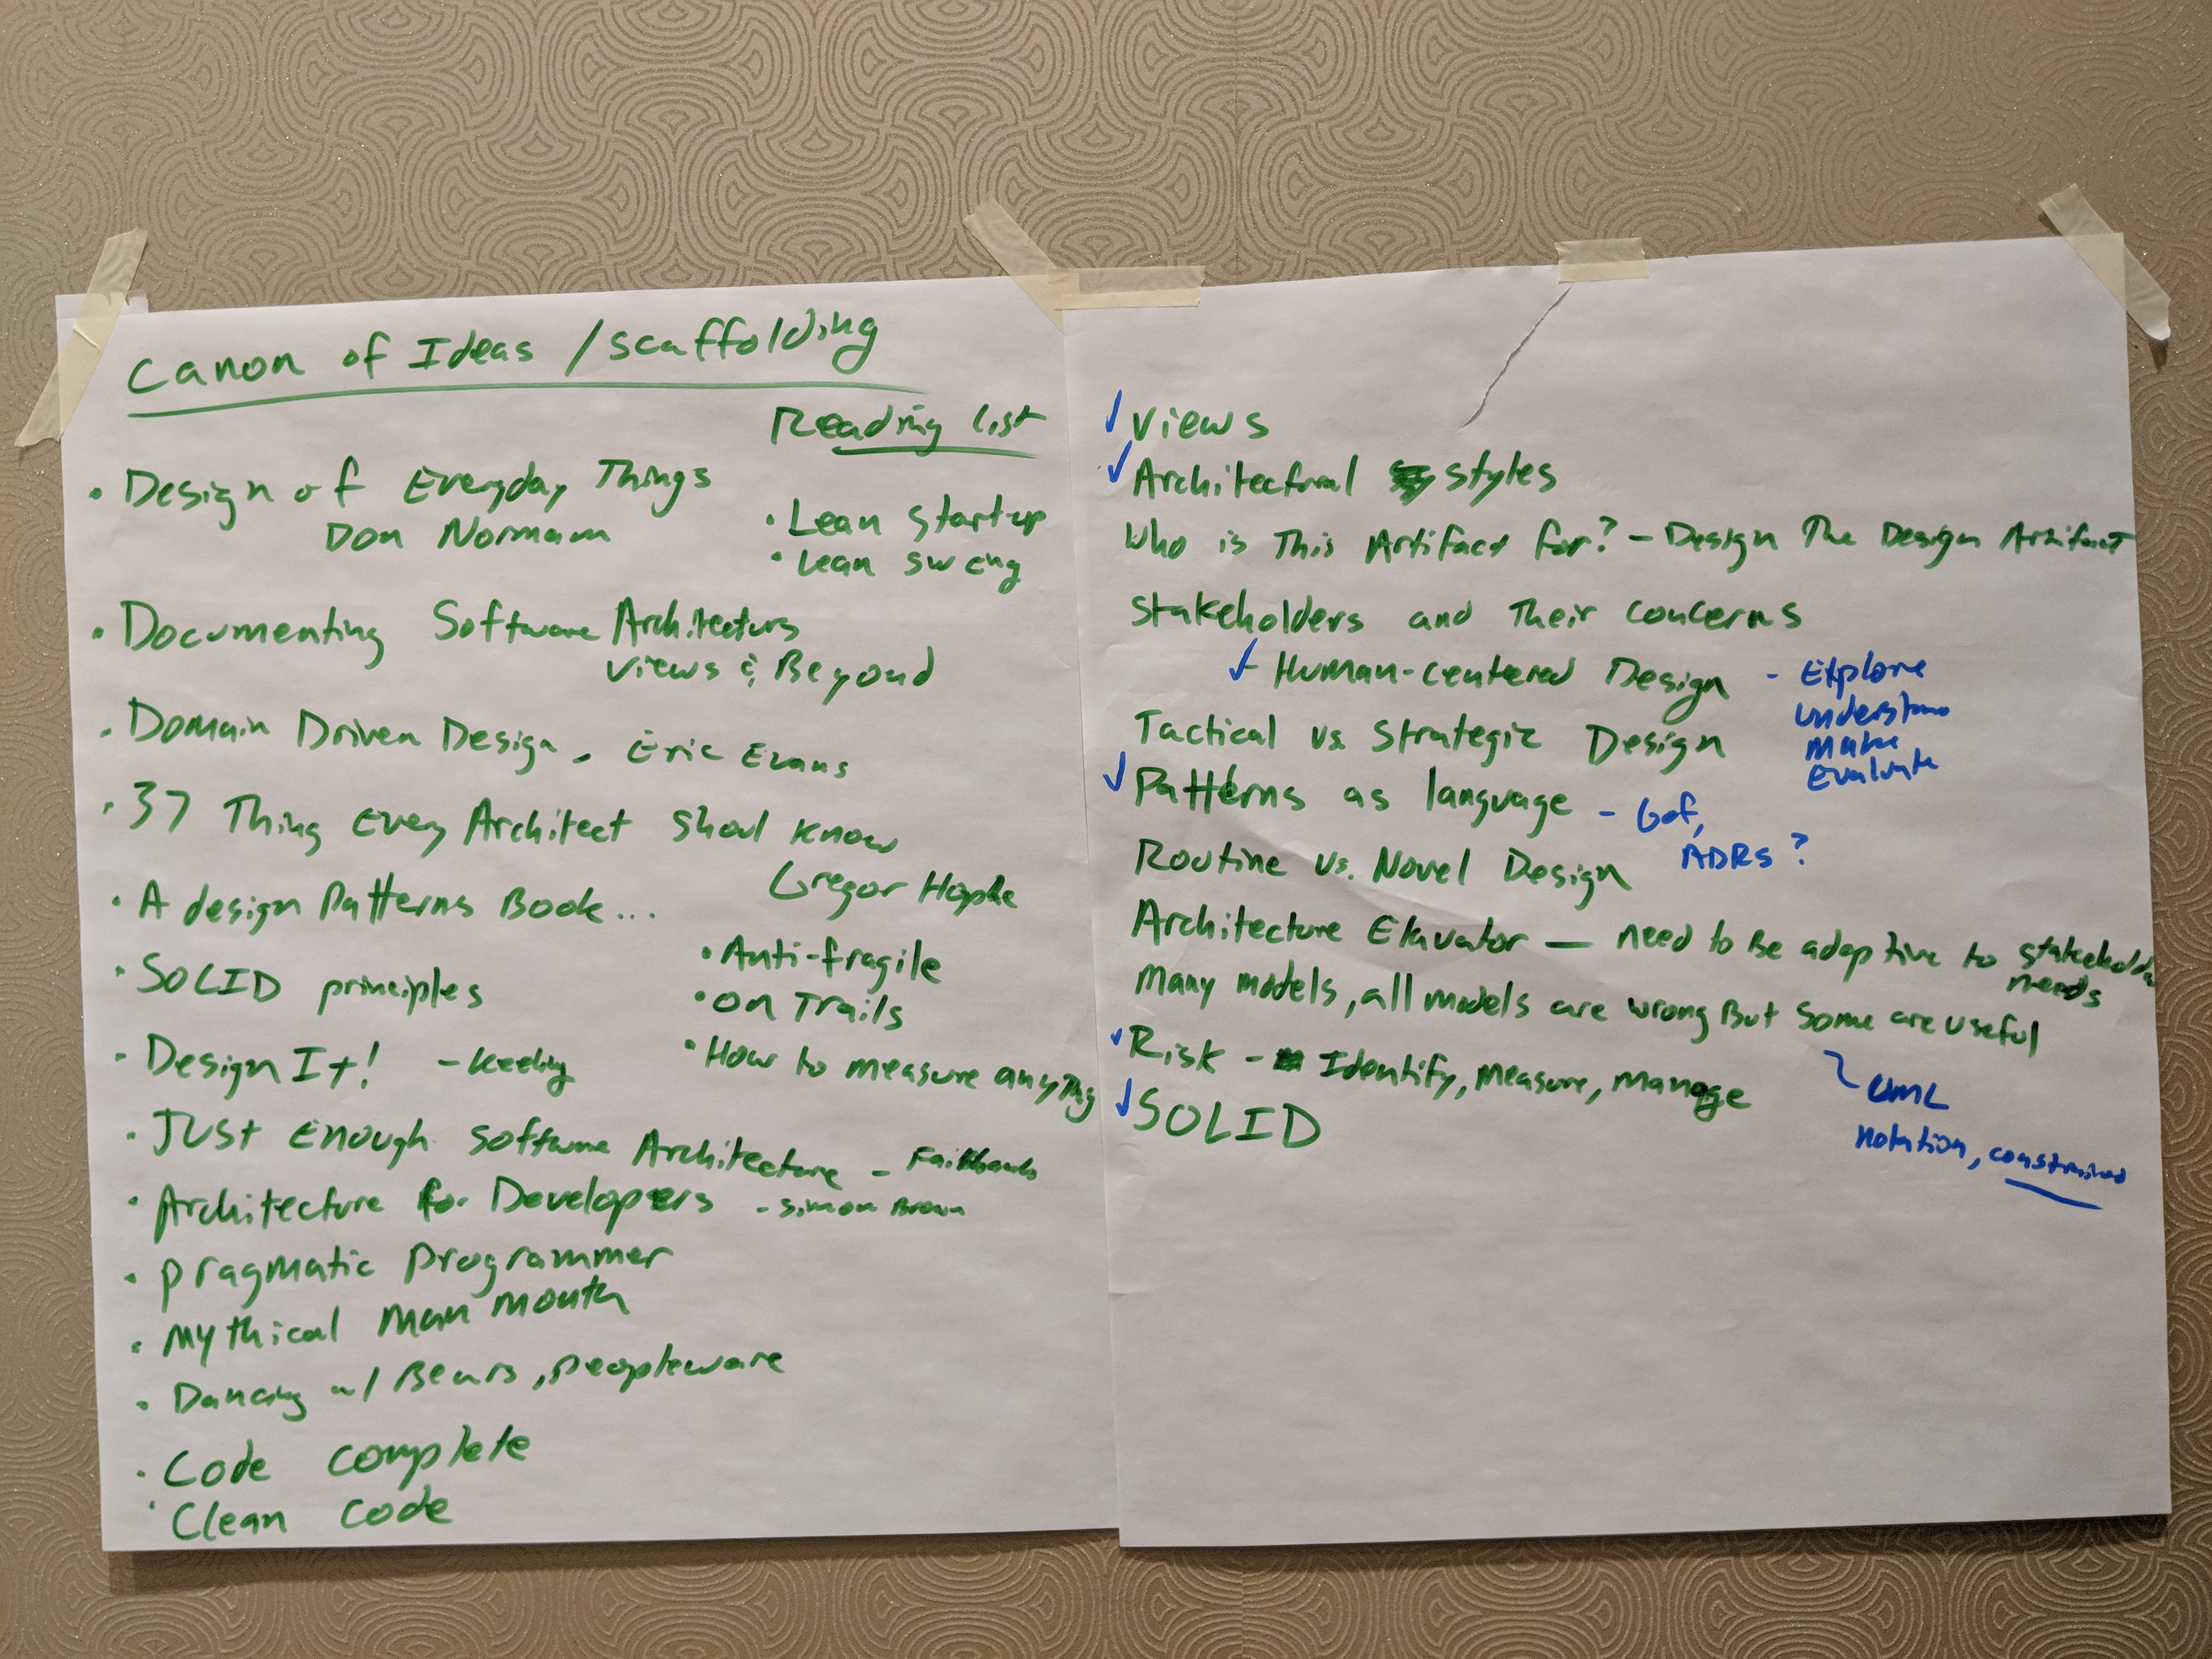 Canon of Ideas / scaffolding
Reading list
• Design of Everyday Things
Don Norman
• Lean Startup
• Lean sw eng
• Documenting Software Architecture
Views & Beyond
• Domain Driven Design - Eric Evans
• 37 Thing Every Architect Shoul Know
Gregor Hophe
• A design Patterns Book...
• SOLID principles
• Anti-fragile
• On Trails
• How to measure anything
• Design It! - Keeling
• Just Enough Software Architecture - Fairbanks
• Architecture for Developers - Simon Brown
• Pragmatic Programmer
• Mythical Man Month
• Dancing w/ Bears, Peopleware
• Code complete
• Clean Code
✓ Views
✓ Architectural styles
Who is This Artifact for? - Design The Design Artifact
Stakeholders and Their Concerns
✓ Human-centered Design - Explore
Understand
Make
Evaluate
Tactical vs. Strategic Design
✓ Patterns as language - Gof,
ADRs?
Routine vs. Novel Design
Architecture Elavator — need to Be adaptive to stakeholder
needs
Many models, all models are wrong But some are useful
UML
notation, constrained
✓ Risk - Identify, measure, manage
✓ SOLID